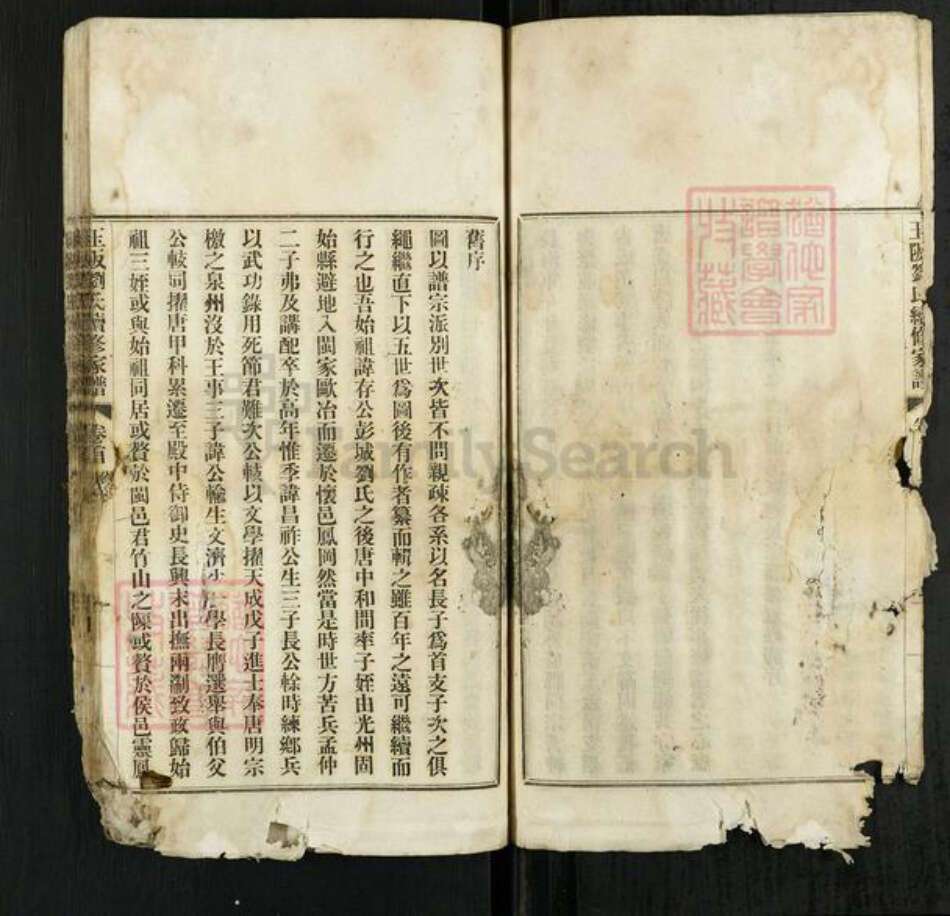 玉阪劉氏續修家譜
舊序
圖以譜宗派別世次皆不問親疎各系以名長子爲首支子次之俱
繩繼直下以五世爲圖後有作者纂而輯之雖百年之遠可繼續而
行之也吾始祖諱存公彭城劉氏之後唐中和間率子姪由光州固
始縣避地入閩家歐冶而遷於懷邑鳳岡然當是時世方苦兵孟仲
二子弗及講配卒於高年惟季諱昌祚公生三子長公餘時練鄉兵
以武功錄用死節君難次公轅以文學擢天成戊子進士奉唐明宗
檄之泉州沒於王事三子諱公輸生文濟 學長膺選舉與伯父
公轅同擢唐甲科累遷至殿中侍御史長興末出撫兩浙致政歸始
祖三姪或與始祖同居或贅於閩邑君竹山之陳或贅於侯邑靈鳳
玉阪劉氏續修家譜 卷首
猶他家
譜學會
特藏
FamilySearch